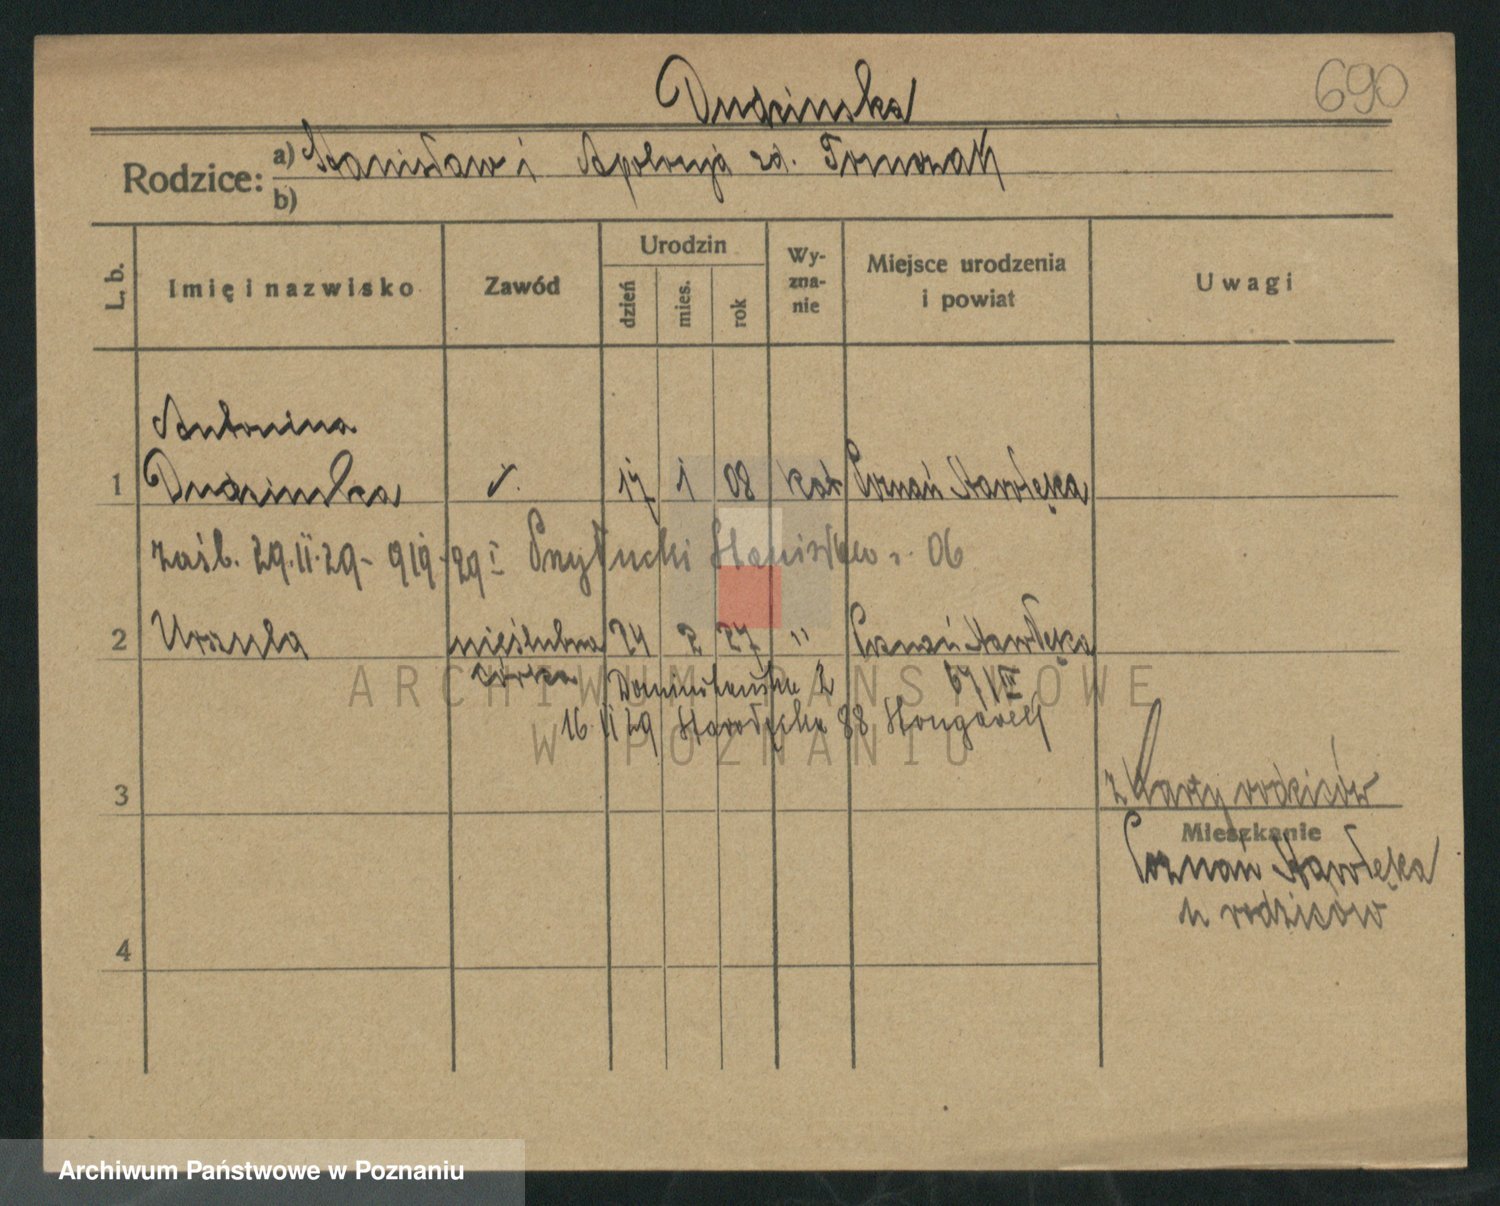 Dudzinska
690
Rodzice: a) Stanisław i Apolonja zd. Tomczak
b)
L. b.
Imię i nazwisko
Zawód
Urodzin
dzień
mies.
rok
Wy-
zna-
nie
Miejsce urodzenia
i powiat
Uwagi
Antonina
1 Dudzinska 17 1 08 kat Poznań Starołęka
zaśb. 29.II.29 - 919-29 I Przyłucki Stanisław r. 06
2 Urszula nieślubna 24 2 27 " Poznań Starołęka
córka Dominikańska 2
16 II 29 Starołęcka 88
3
z karty rodziców
Mieszkanie
Poznań Starołęka
u rodziców
4
ARCHIWUM PAŃSTWOWE
W POZNANIU
Archiwum Państwowe w Poznaniu